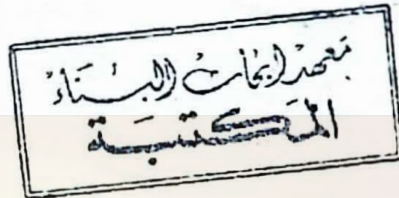 معهد ابحاث البناء
المكتبة